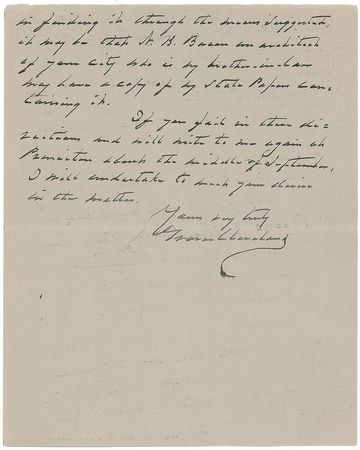 in finding it through the means suggested,
it may be that N. B. Bacon an architect
of your City who is my brother-in-law
may have a copy of my State Papers con-
taining it.
If you fail in these di-
rections and will write to me again at
Princeton about the middle of September,
I will undertake to meet your desire
in the matter.
Yours very truly
Grover Cleveland